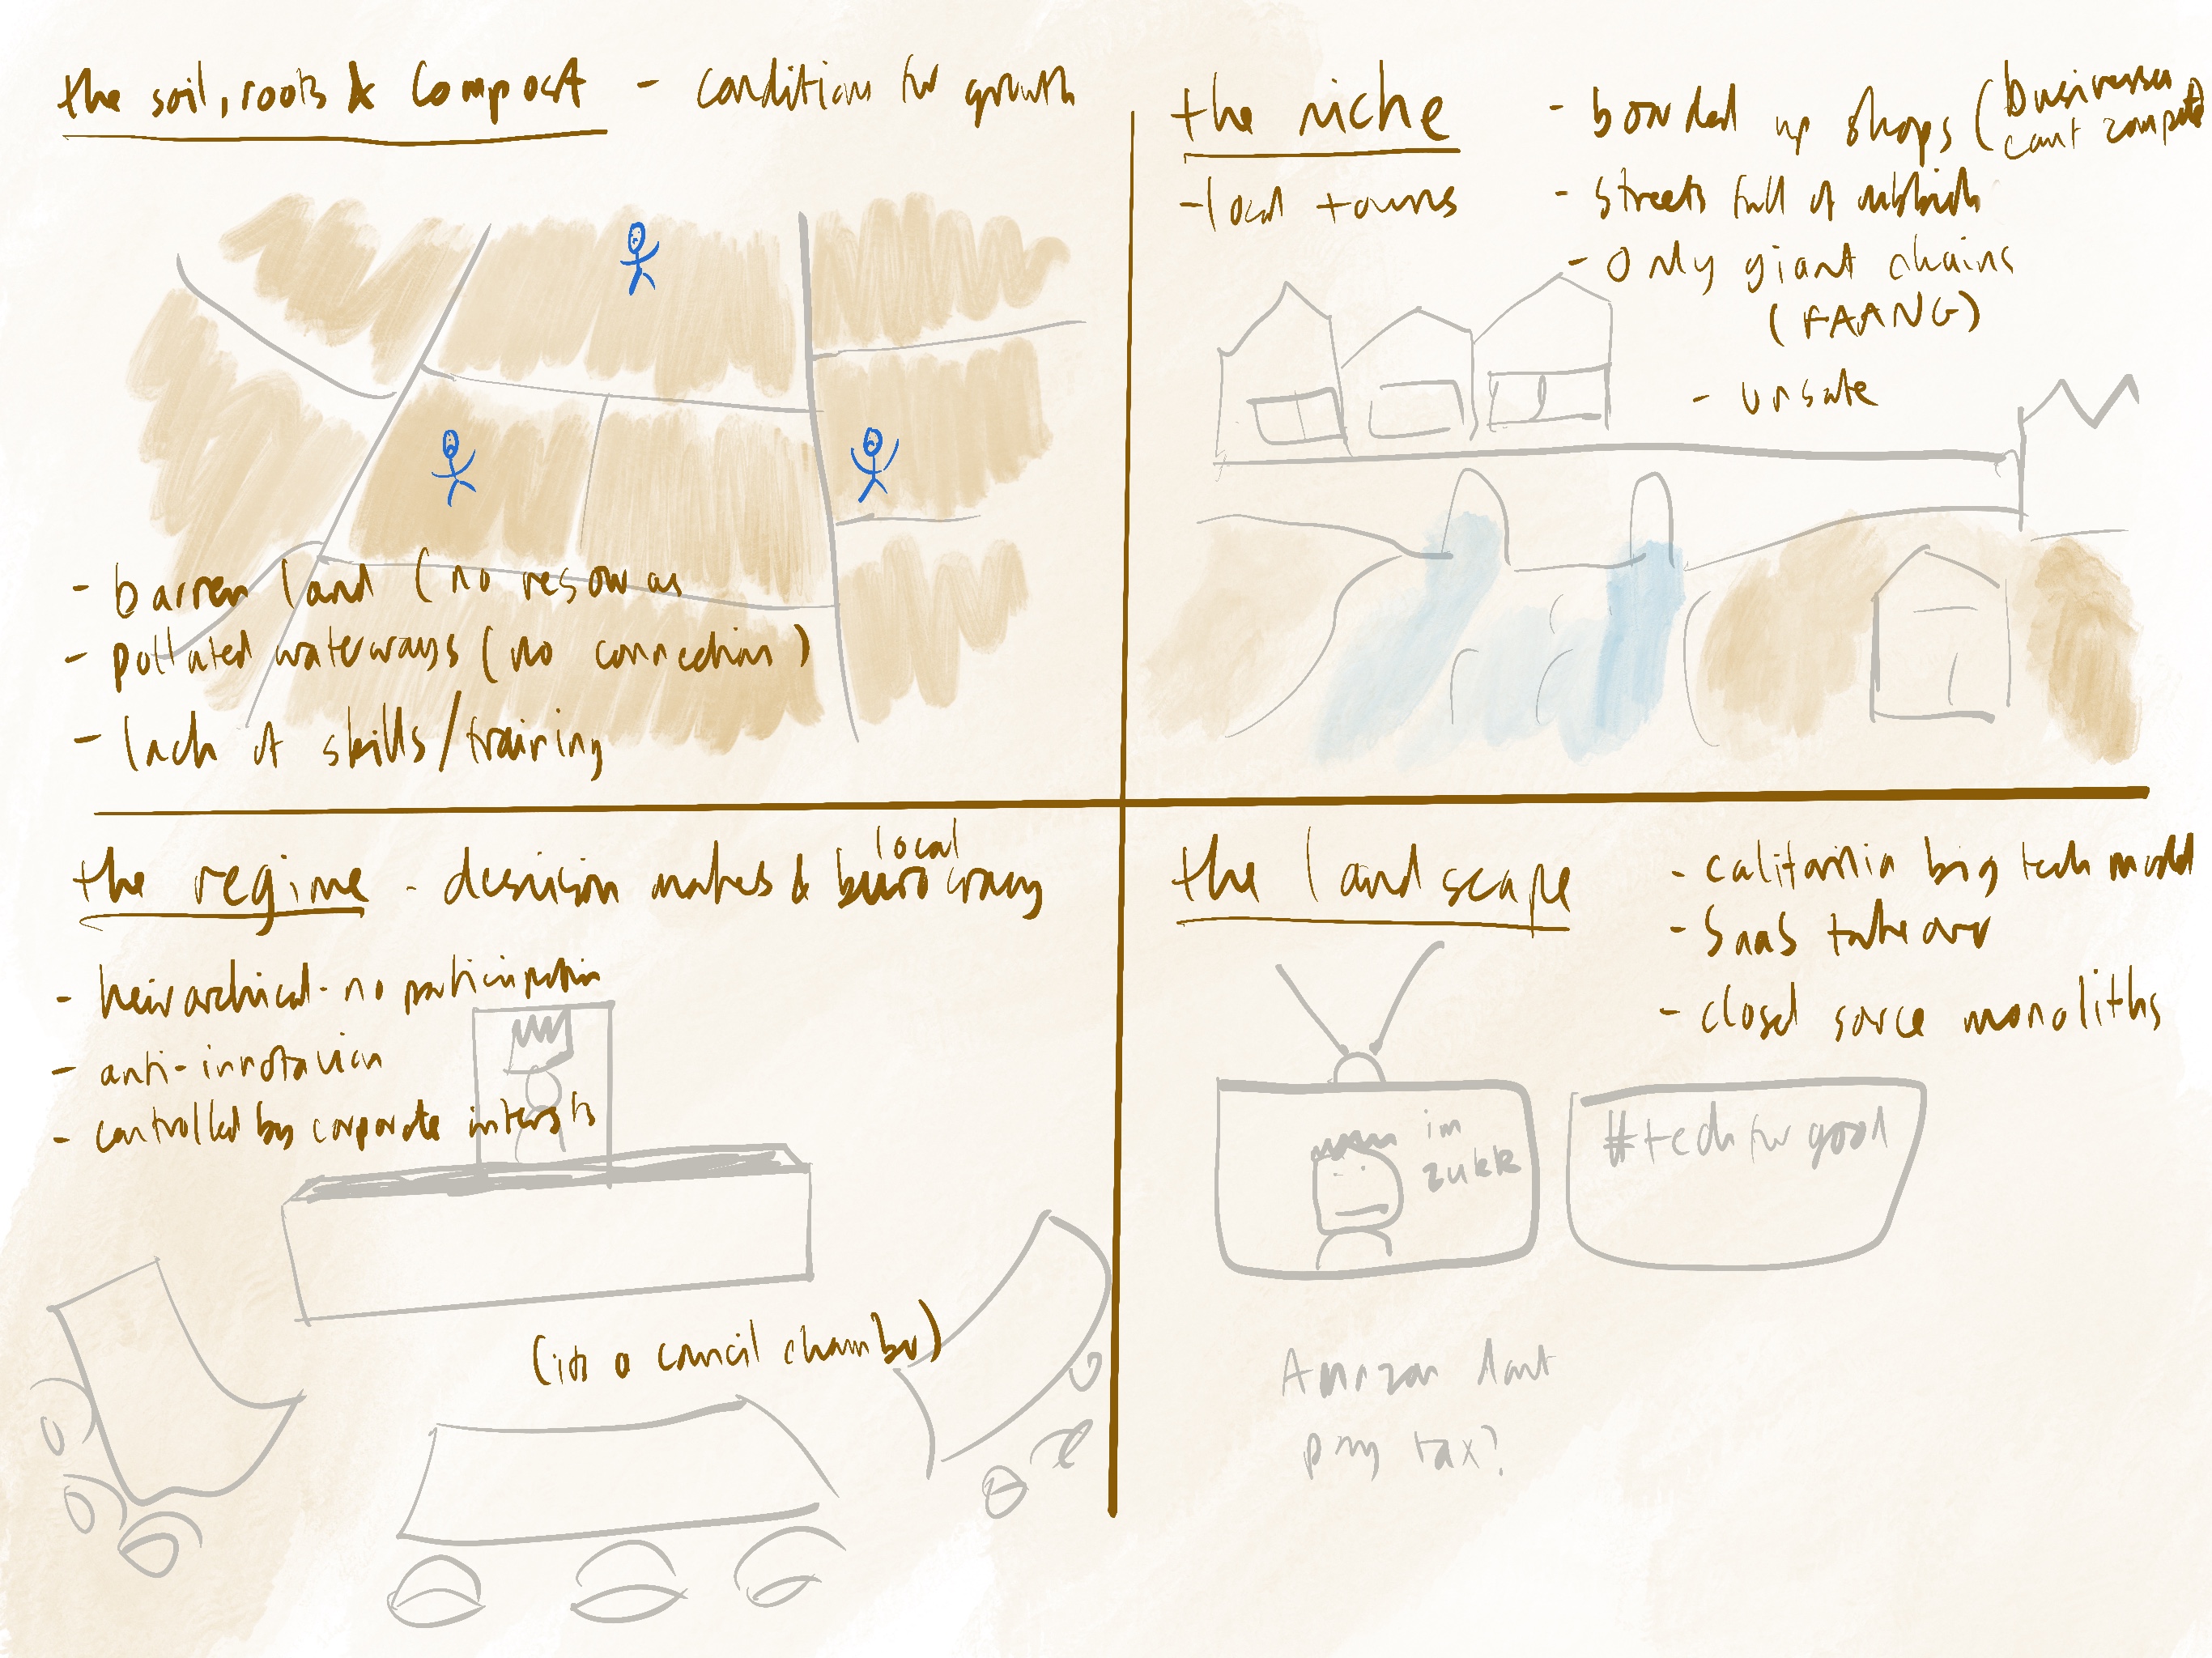 the soil, roots & compost - conditions for growth
- barren land (no resources
- polluted waterways (no connections)
- lack of skills/training
the niche
- local towns
- boarded up shops (businesses cant compete)
- streets full of rubbish
- only giant chains
(FAANG)
- unsafe
the regime - descision makers & local burocracy
- heirarchical - no participation
- anti-innovation
- controlled by corporate interests
(its a council chamber)
the landscape
- california big tech model
- SaaS takeover
- closed source monoliths
im
zukk
#techforgood
Amazon dont
pay tax?